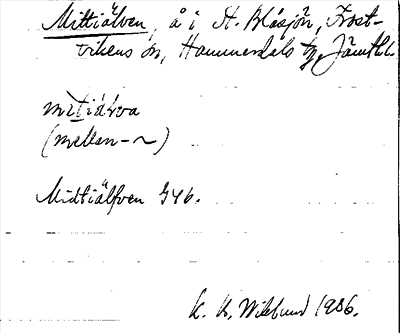 Mittiälven, å i St. Blåsjön, Frost-
vikens sn, Hammerdals tg, Jämtl.
mìtiálva
(mellan-~)
Midtiälfven G46.
K. B. Wiklund 1906.